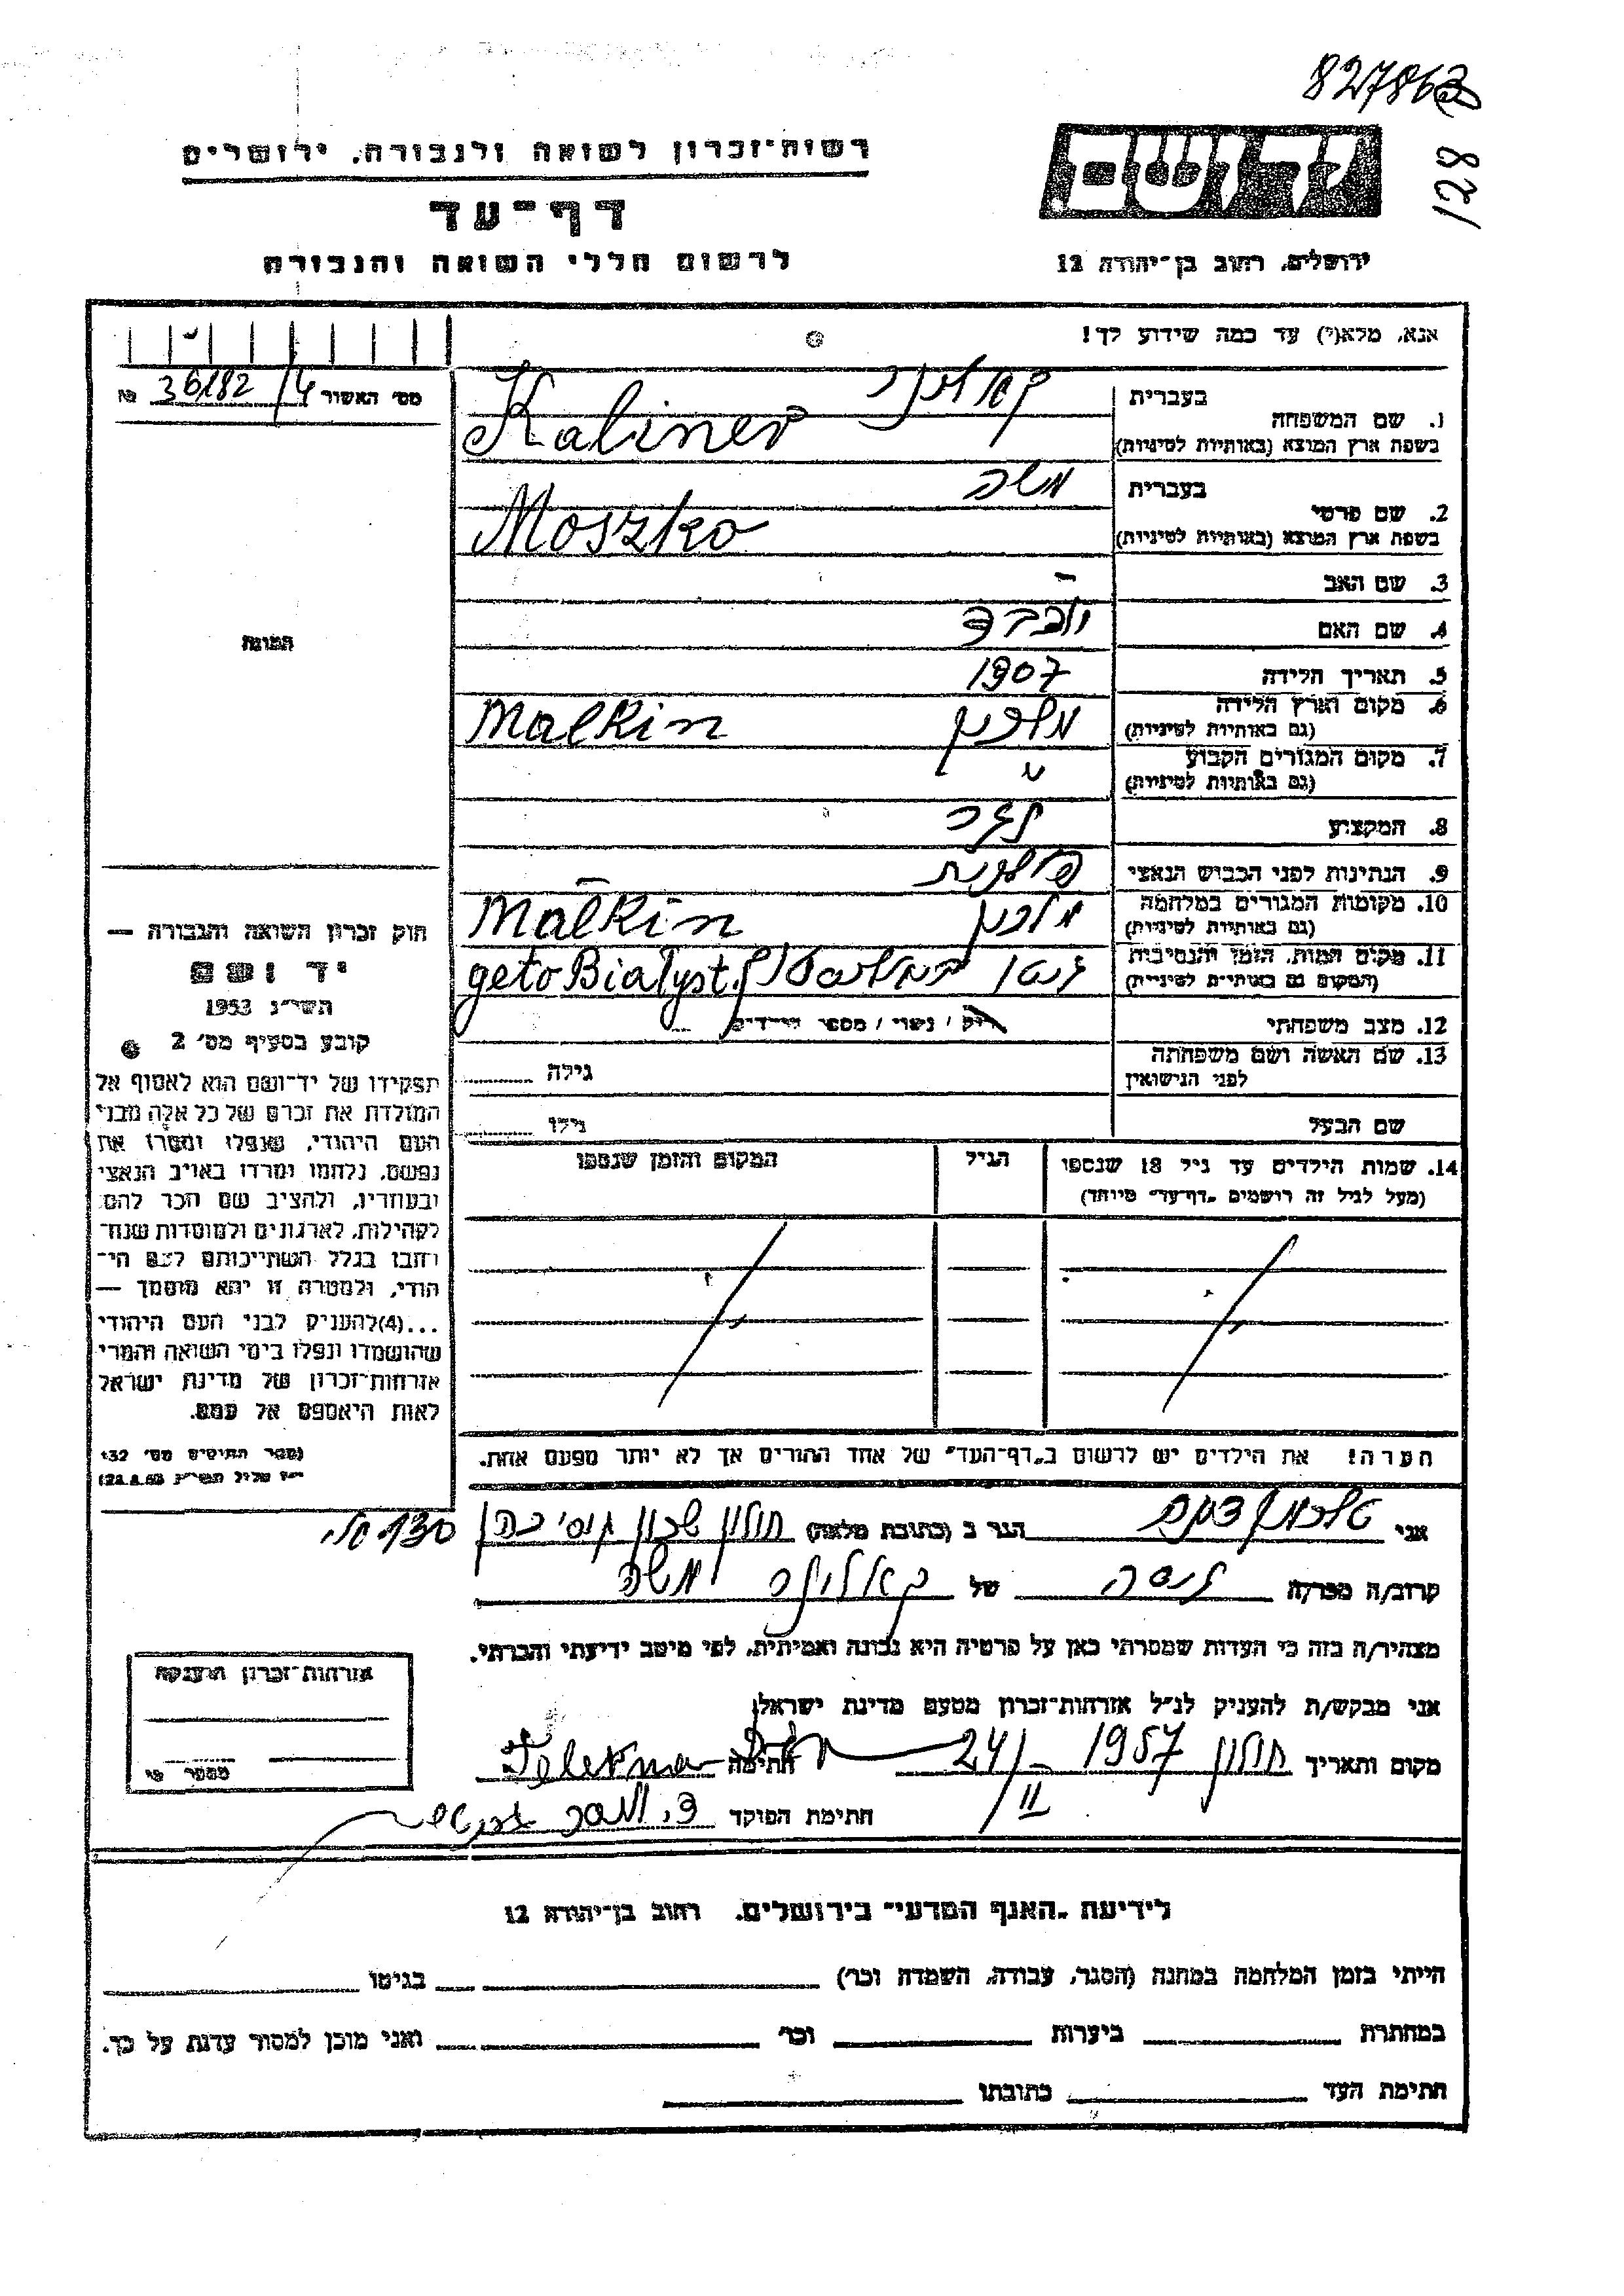 827863
821
רשות-זכרון לשואה ולגבורה, ירושלים
דף-עד
לרשום חללי השואה והגבורה
ידושם
ירושלים, רחוב בן-יהודה 12
אנא, מלא(י) עד כמה שידוע לך!
מס' האשור 36182/4 №
בעברית
1. שם המשפחה
בשפת ארץ המוצא (באותיות לטיניות) Kaliner
בעברית משה
2. שם פרטי
בשפת ארץ המוצא (באותיות לטיניות) Moszko
3. שם האב —
4. שם האם יוכבד
תמונה
5. תאריך הלידה 1907
6. מקום וארץ הלידה
(גם באותיות לטיניות) מלכין Malkin
7. מקום המגורים הקבוע
(גם באותיות לטיניות) "
8. המקצוע
9. הנתינות לפני הכבוש הנאצי פולנית
10. מקומות המגורים במלחמה
(גם באותיות לטיניות) מלכין Malkin
11. מקום המות, הזמן והנסיבות
(המקום גם באותיות לטיניות) גטו ביאליסטוק geto Bialyst.
12. מצב משפחתי רוק / נשוי / מספר הילדים
13. שם האשה ושם משפחתה
לפני הנישואין
גילה
שם הבעל
גילו
14. שמות הילדים עד גיל 18 שנספו
(מעל לגיל זה רושמים "דף-עד" מיוחד)
הגיל
המקום והזמן שנספו
הערה! את הילדים יש לרשום ב"דף-העד" של אחד ההורים אך לא יותר מפעם אחת.
חוק זכרון השואה והגבורה —
יד ושם
תשי"ג 1953
קובע בסעיף מס' 2
תפקידו של יד-ושם הוא לאסוף אל
המולדת את זכרם של כל אלה מבני
העם היהודי, שנפלו ומסרו את
נפשם, נלחמו ומרדו באויב הנאצי
ובעוזריו, ולהציב שם וזכר להם
לקהילות, לארגונים ולמוסדות שנח-
רבו בגלל השתייכותם לעם הי-
הודי, ולמטרה זו יהא מוסמך —
...(4)להעניק לבני העם היהודי
שהושמדו ונפלו בימי השואה והמרי
אזרחות-זכרון של מדינת ישראל
לאות היאספם אל עמם.
(ספר החוקים מס' 132
אני הגר ב (כתובת מלאה) חולון שכון 130
קרוב/ה מכר/ה של קאלינר משה
מצהיר/ה בזה כי העדות שמסרתי כאן על פרטיה היא נכונה ואמיתית, לפי מיטב ידיעתי והכרתי.
אני מבקש/ת להעניק לנ"ל אזרחות-זכרון מטעם מדינת ישראל
מקום ותאריך חולון 1957 24/II חתימה
חתימת הפוקד
אזרחות-זכרון הוענקה
מספר
לידיעת "האגף המדעי" בירושלים, רחוב בן-יהודה 12
הייתי בזמן המלחמה במחנה (הסגר, עבודה, השמדה וכו') בגיטו
במחתרת ביערות וכו' ואני מוכן למסור עדות על כך.
חתימת העד כתובתו